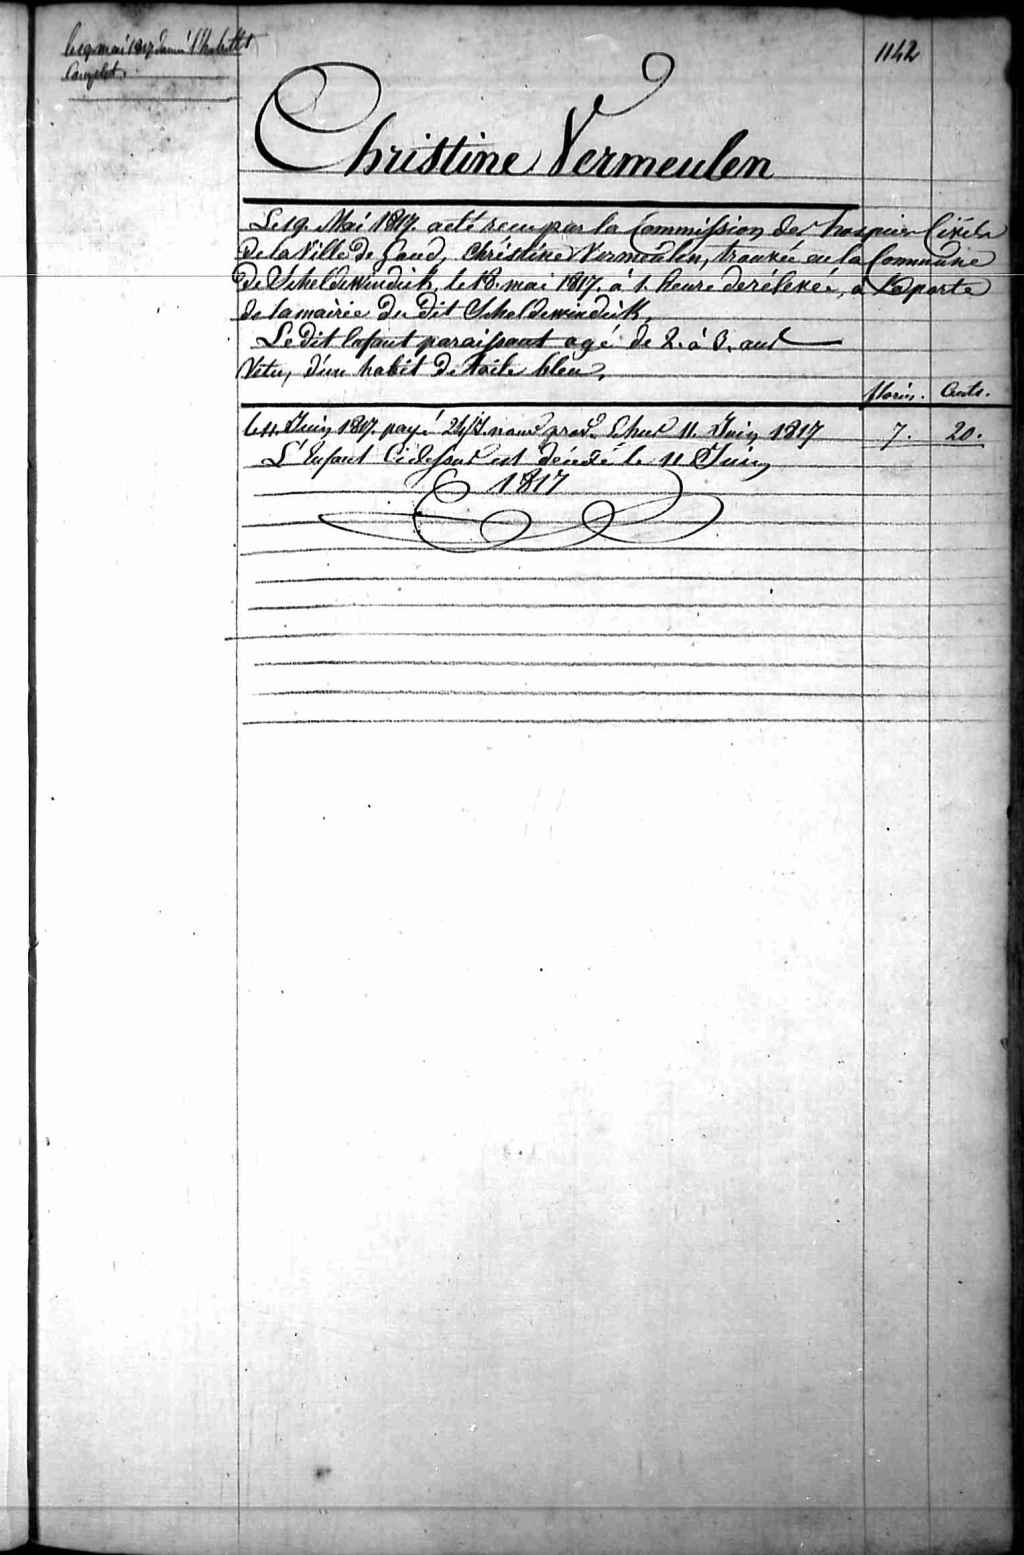 le 19 mai 1817 donné l'habillt
Complet.
1142
Christine Vermeulen
Le 19. Mai 1817. a été recu par la Commission des hospices Civils
de la Ville de Gand, Christine Vermeulen, trouvée en la Commune
de Scheldewindick, le 18. mai 1817. à 1. heure de rélevée, à la porte
de la mairie du dit Scheldewindick,
Le dit Enfant paraissant agé de 2. à 3. ans
Vetu, d'un habit de toile bleu,
florins. Cents.
le 11. Juin 1817. payé 24 11. Juin 1817 7. 20.
L'Enfant Cidessus est décédé le 11 Juin
1817